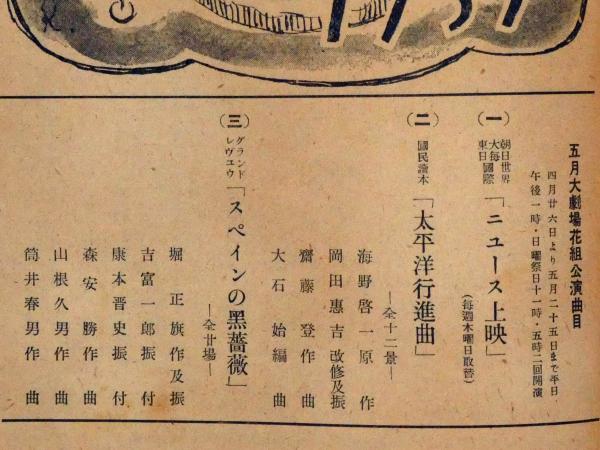 1937
五月大劇場花組公演曲目
四月廿六日より五月二十五日まで平日
午後一時・日曜祭日十一時・五時二回開演
(一)
朝日世界
大每國際
東日
「ニュース上映」
(每週木曜日取替)
(二)
國民讀本
「太平洋行進曲」
―全十二景―
海野啓一原作
岡田惠吉改修及振
齋藤登作曲
大石始編曲
(三)
グランド
レヴュウ
「スペインの黑薔薇」
―全廿場―
堀正旗作及振
吉富一郎振付
康本晋史振付
森安勝作曲
山根久男作曲
筒井春男作曲